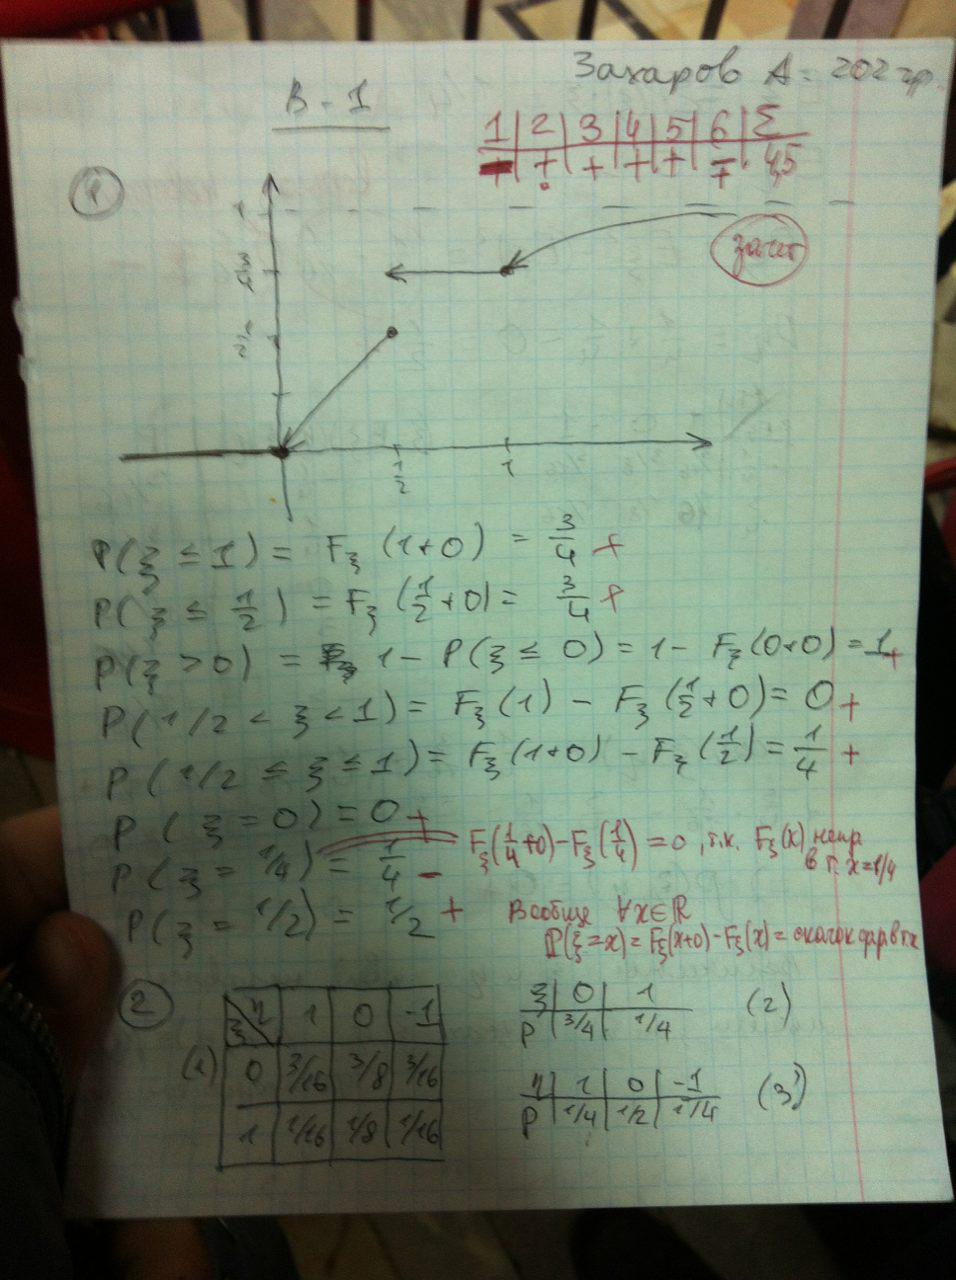 Захаров А. 202 гр.
В - 1
1 | 2 | 3 | 4 | 5 | 6 | Σ
+ | + | + | + | ∓ | 4,5
зачет
1
1
3/4
1/2
1/2
1
P(ξ ≤ 1) = F_ξ (1+0) = 3/4 +
P(ξ ≤ 1/2) = F_ξ (1/2+0) = 3/4 +
P(ξ > 0) = 1 - P(ξ ≤ 0) = 1 - F_ξ (0+0) = 1 +
P(1/2 < ξ < 1) = F_ξ (1) - F_ξ (1/2+0) = 0 +
P(1/2 ≤ ξ ≤ 1) = F_ξ (1+0) - F_ξ (1/2) = 1/4 +
P(ξ = 0) = 0 +
P(ξ = 1/4) = 1/4 - F_ξ(1/4+0) - F_ξ(1/4) = 0, т.к. F_ξ(x) непр
в т. x=1/4
P(ξ = 1/2) = 1/2 + Вообще ∀x∈ℝ
P(ξ=x) = F_ξ(x+0) - F_ξ(x) =
2
ξ \ η | 1 | 0 | -1
0 | 3/16 | 3/8 | 3/16
1 | 1/16 | 1/8 | 1/16
(1)
ξ | 0 | 1
P | 3/4 | 1/4
(2)
η | 1 | 0 | -1
P | 1/4 | 1/2 | 1/4
(3)